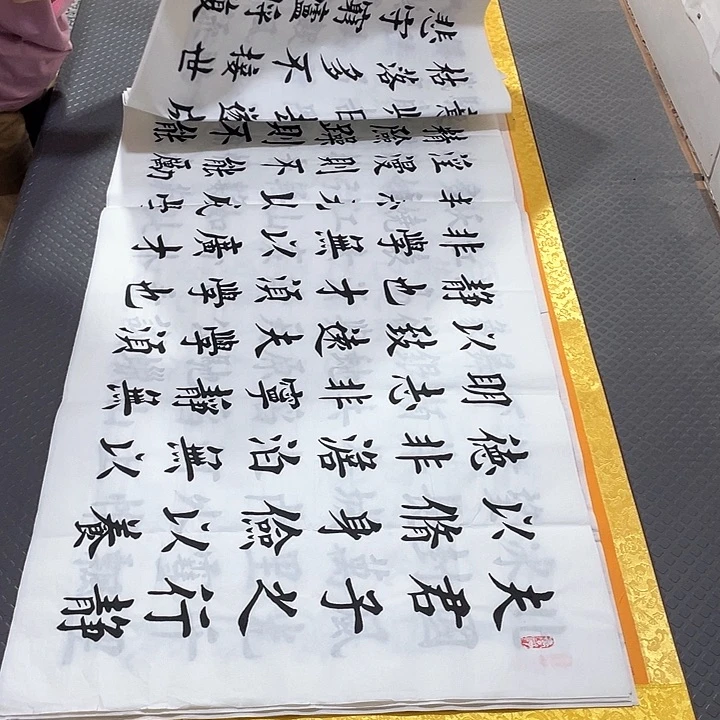 夫君子之行静
以脩身儉以養
德非澹泊無以
明志非寧靜無
以致遠夫學須
靜也才須學也
非學無以廣才
以成學
淫慢則不能勵
精險躁則不能
日去遂
枯落多不接世
悲守窮廬將復